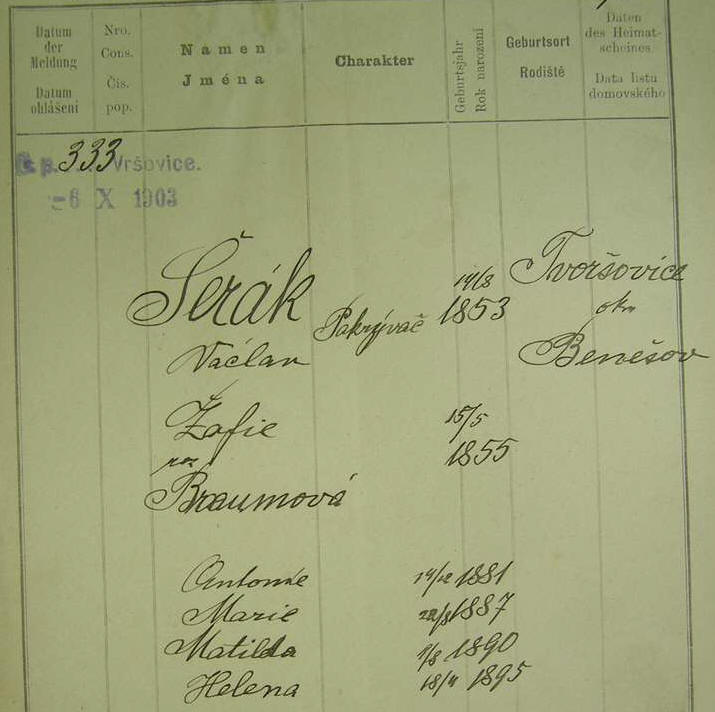 Datum der Meldung
Datum ohlášení
Nro. Cons.
Čís. pop.
Namen
Jména
Charakter
Geburtsjahr
Rok narození
Geburtsort
Rodiště
Daten des Heimat-scheines
Data listu domovského
333 Vršovice.
-6 X 1903
Šerák Pokrývač 14/8 1853 Tvoršovice
okr
Václav Benešov
Žofie 15/5
roz 1855
Braumová
Antonie 1881
Marie 1887
Matilda 1890
Helena 1895